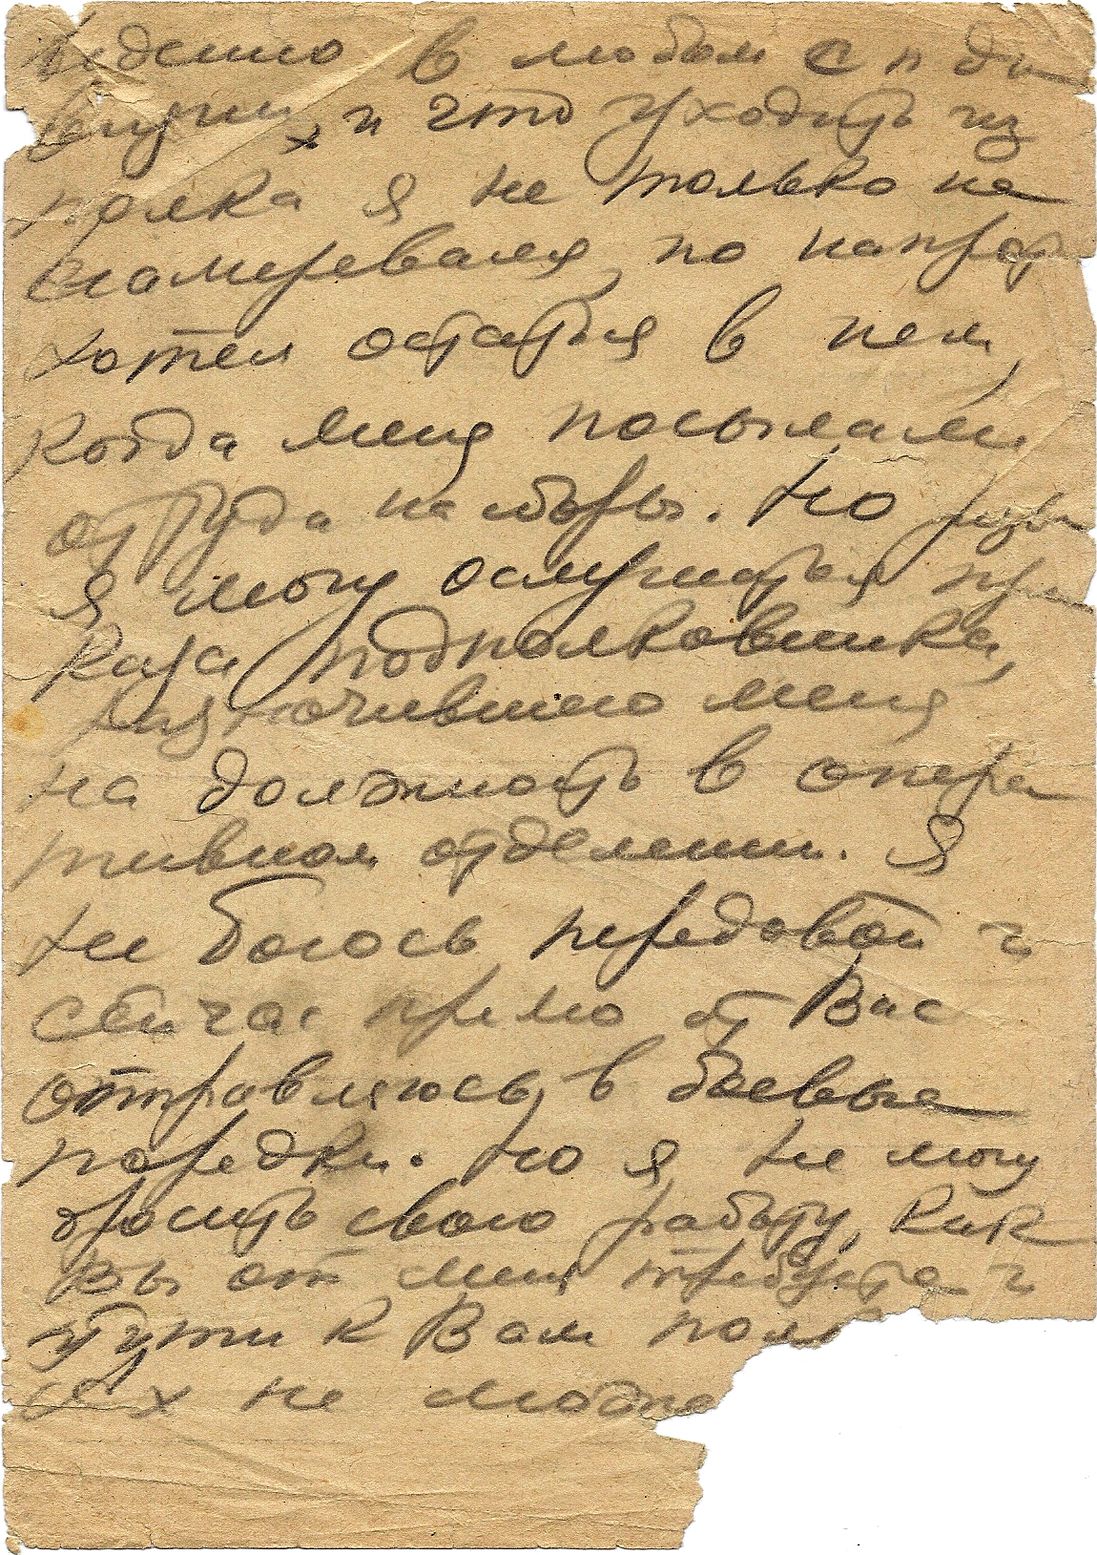 в любом
и что уходить из
полка я не только не
намеревался, но напрот
хотел остаться в нем,
когда меня посылали
оттуда на сборы. Но разве
я могу ослушаться при
каза подполковника,
назначившего меня
на должность в опера
тивном отделении. Я
не боюсь передовой и
сейчас прямо от Вас
отправляюсь в боевые
порядки. Но я не могу
бросить свою работу, как
Вы от меня требуете и
идти к Вам
не может